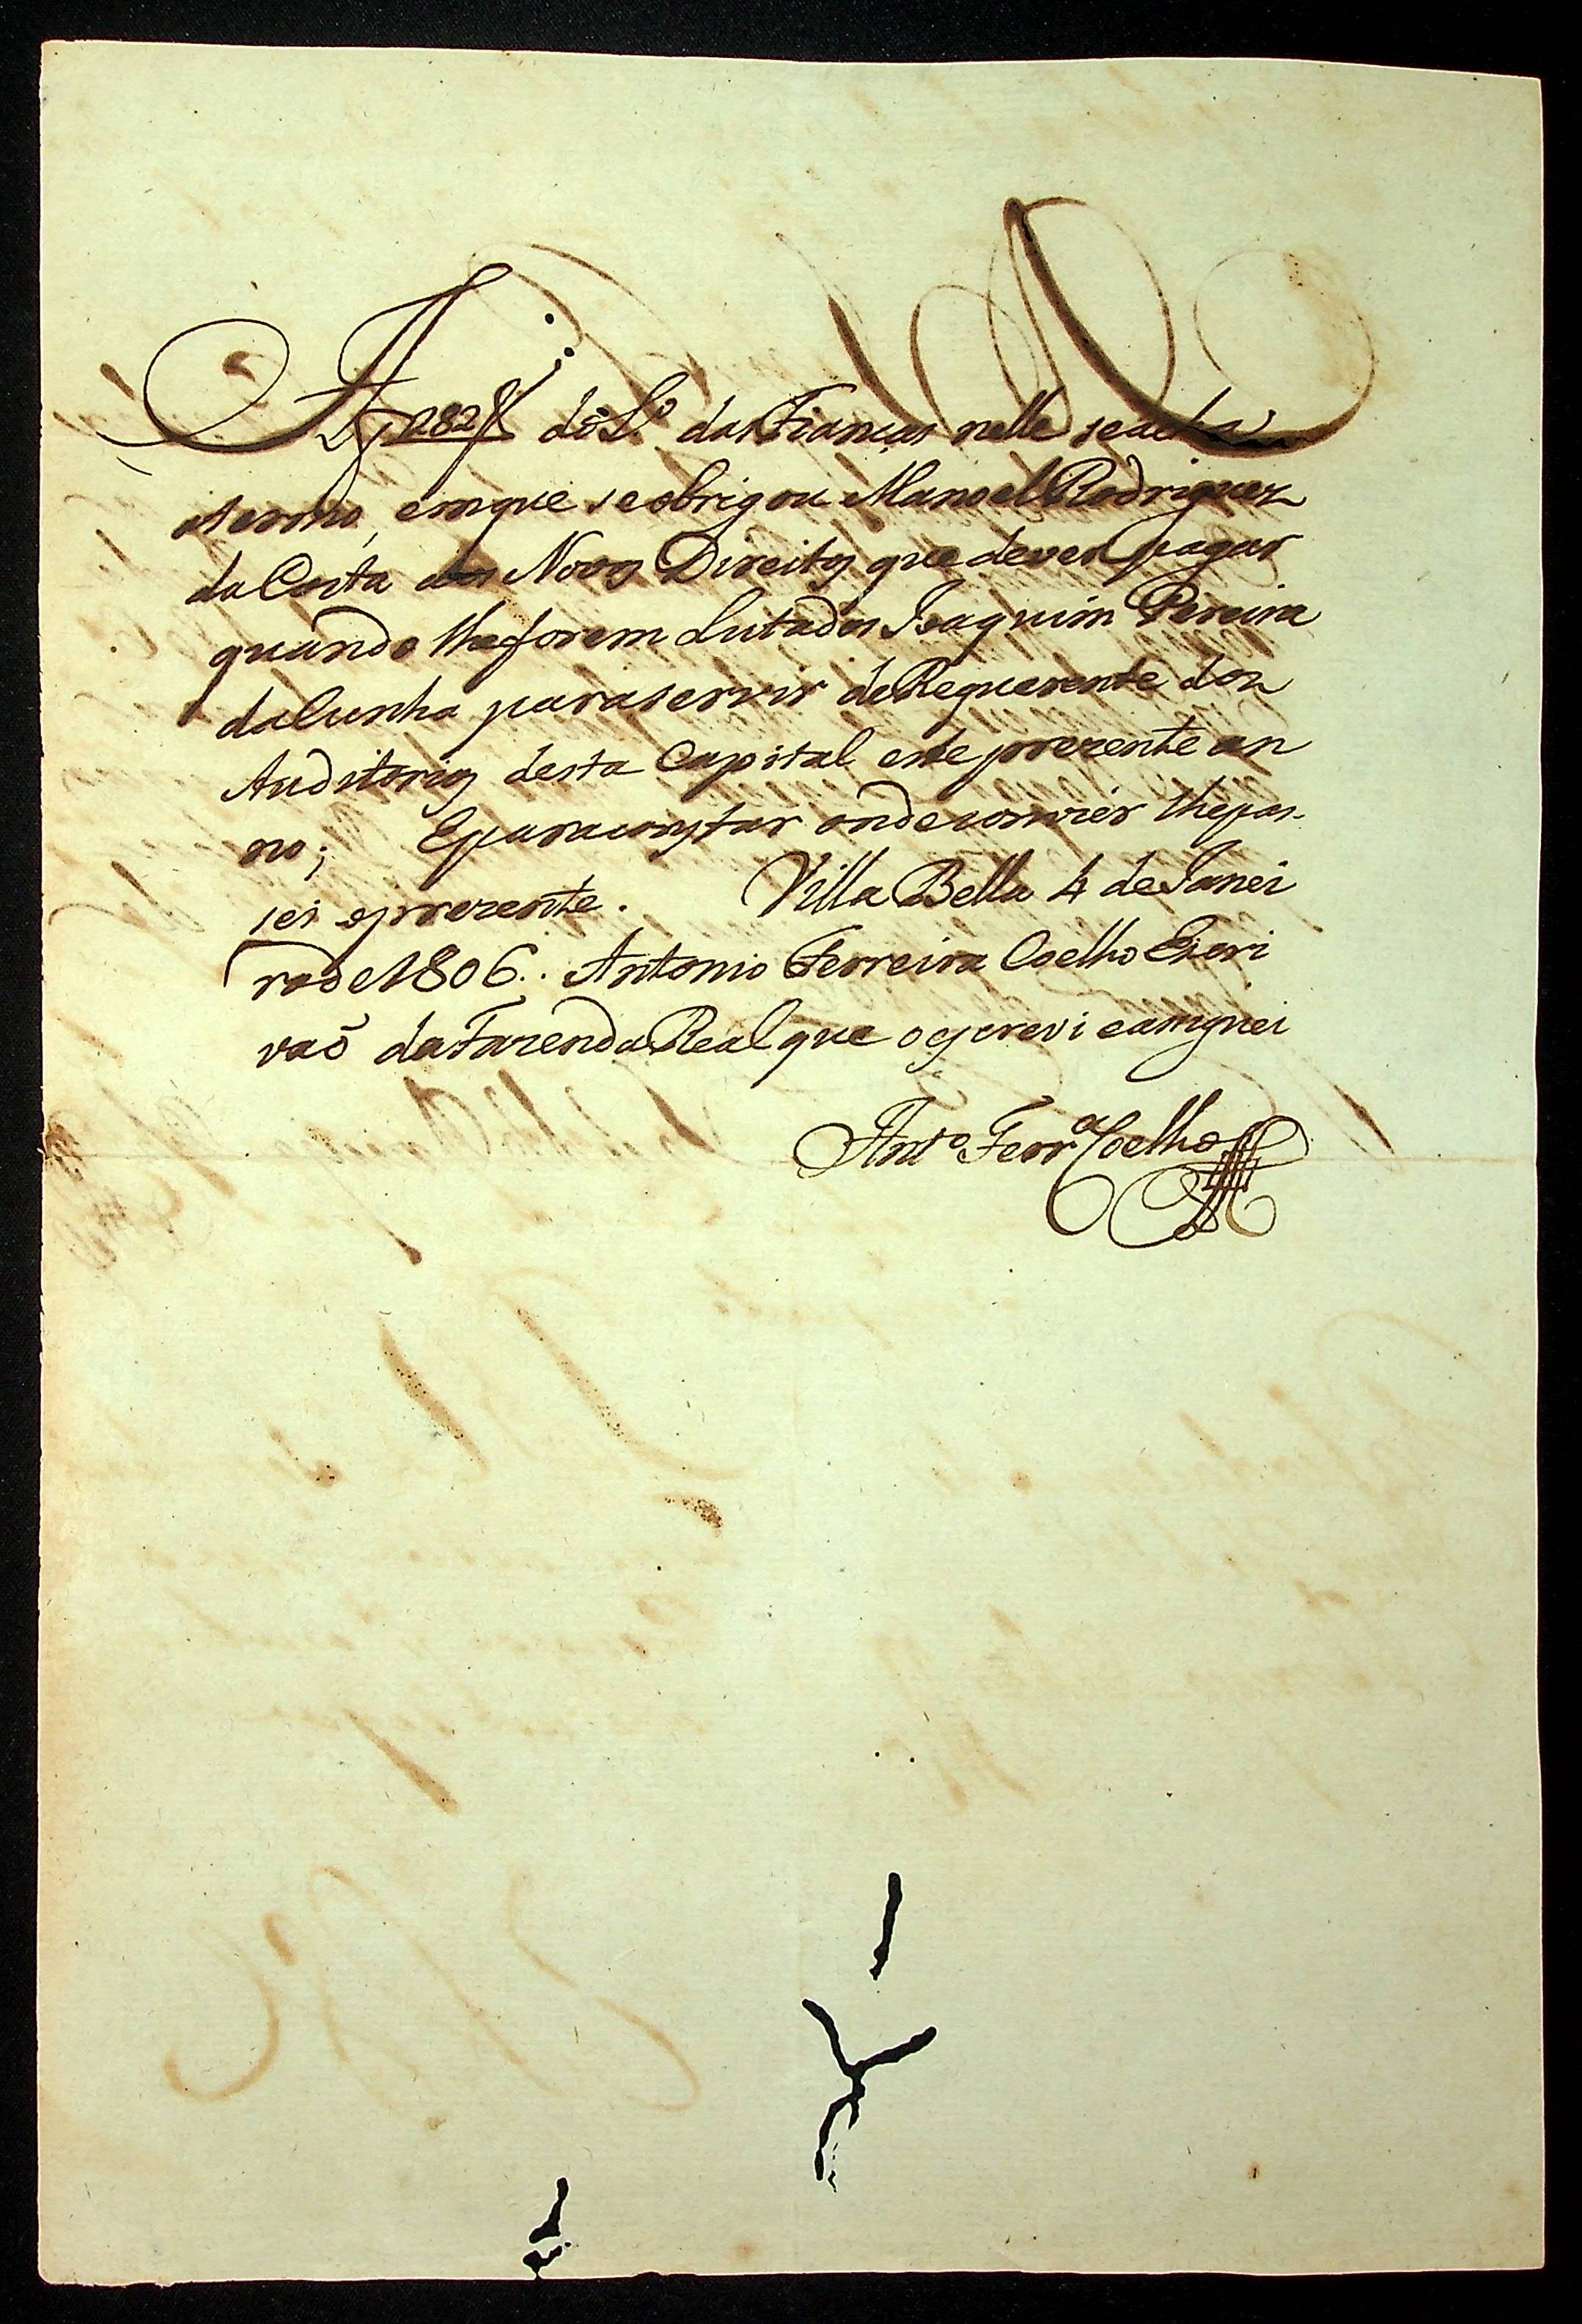 Af 182 do L.º das Fianças nelle seacha
otermo, emque seobrigou Manoel Rodriguez
da Costa aos Novos Direitos que dever pagar
quando lheforem Lutados Joaquim Pereira
daCunha paraservir deRequerente dos
Auditorios desta Capital este prezente an
no; Eparaconstar ondeconvier lhepas-
sei oprezente. Villa Bella 4 deJanei
rode1806.. Antonio Ferreira Coelho Escri
vaõ daFazendaReal que oescrevi easignei
Antº Ferrª Coelho